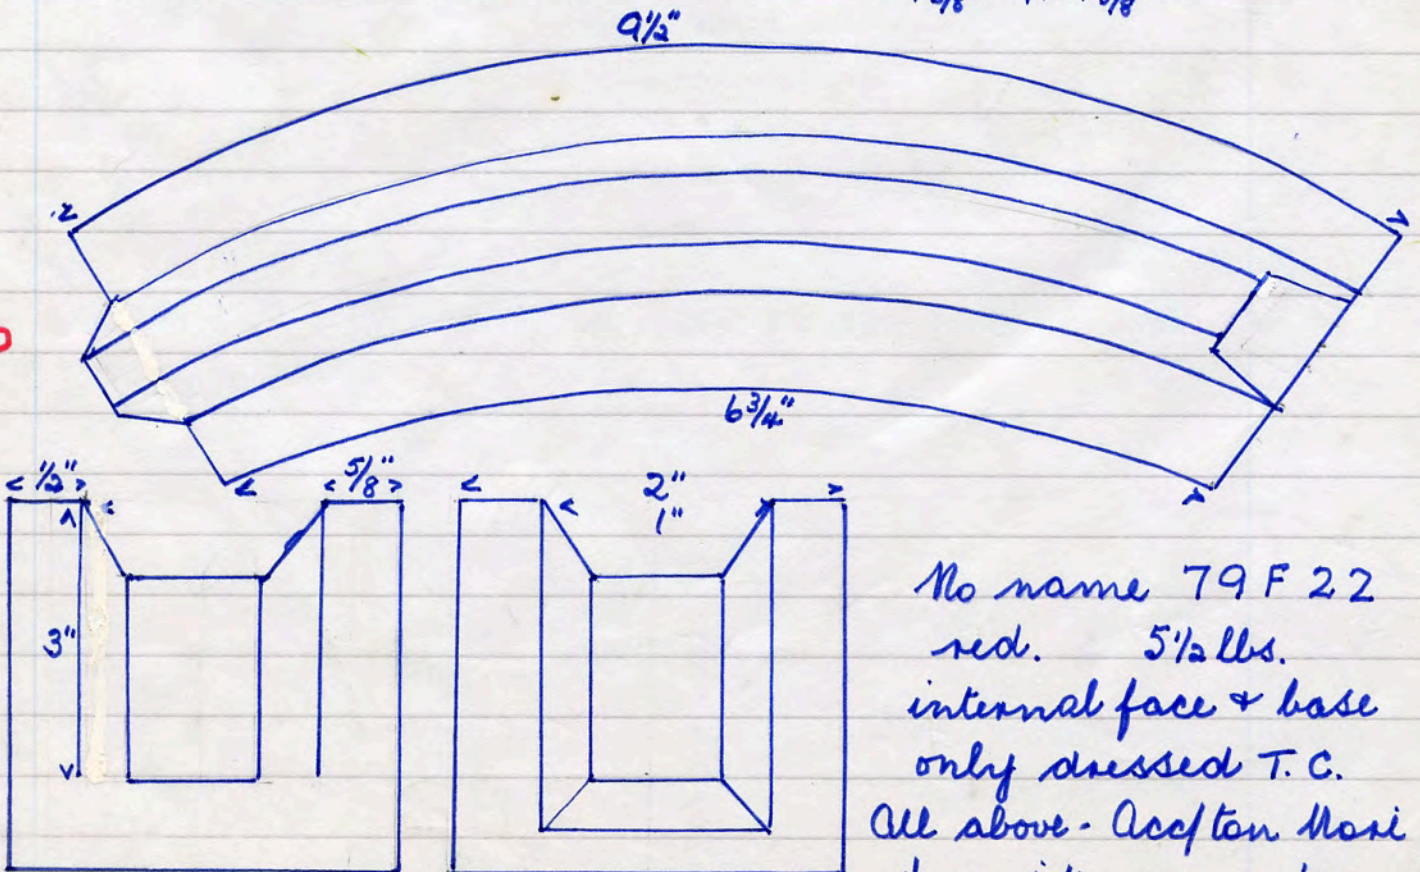 9½"
6¾"
½"
5/8"
2"
1"
3"
No name 79 F 22
red. 5½ lbs.
internal face + base
only dressed T. C.
All above - Acc/ton